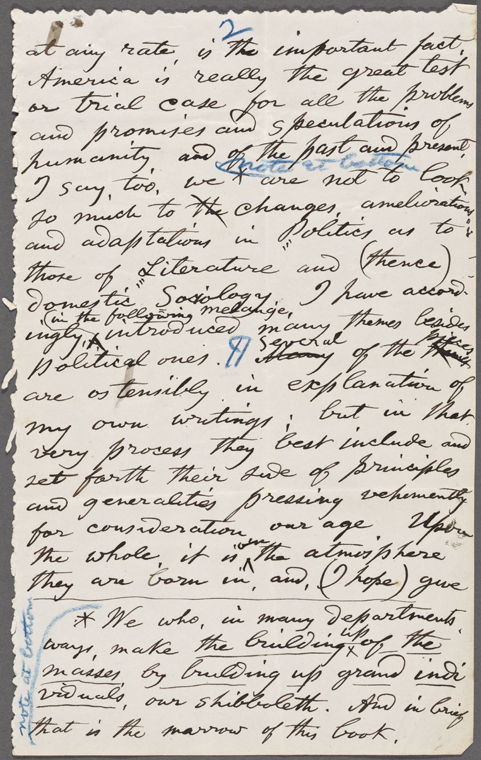 2
at any rate, is the important fact.
America is really the great test
or trial case for all the problems
and promises and speculations of
humanity and of the past and present.
note at bottom
I say, too, we * are not to look
so much to the changes, ameliorations
and adaptations in Politics as to
those of Literature and (thence)
domestic Sociology. I have accord-
(in the following melange,
ingly introduced many themes besides
political ones. ¶ Several of the pieces
are ostensibly in explanation of
my own writings; but in that
very process they best include and
set forth their side of principles
and generalities pressing vehemently
for consideration our age Upon
the whole, it is on the atmosphere
they are born in, and, (I hope) give
* We who, in many departments
ways, make the building up of the
masses, by building up grand indi
viduals, our shibboleth. And in brief
that is the marrow of this book.
note at bottom